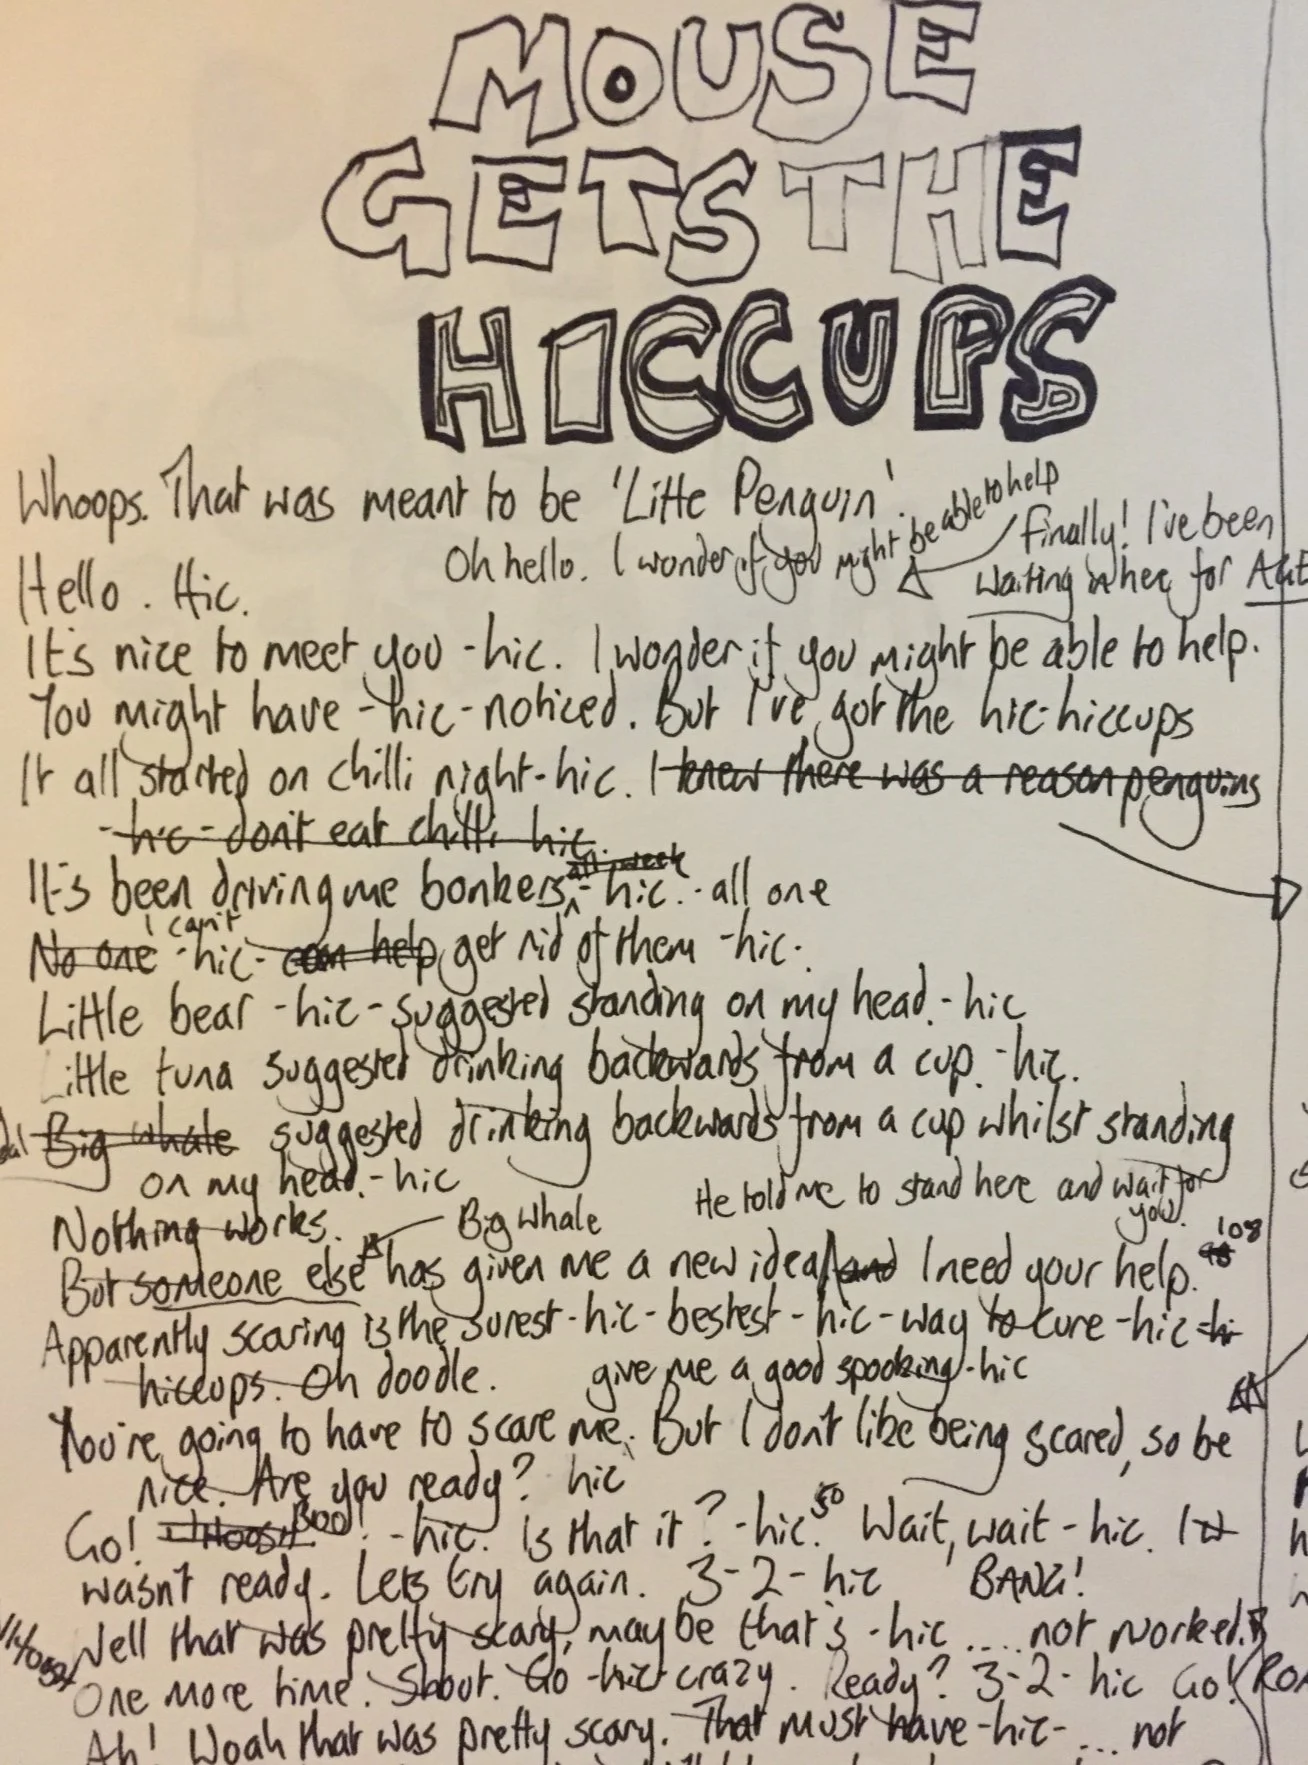 MOUSE
GETS THE
HICCUPS
Whoops. That was meant to be 'Little Penguin'.
Oh hello. I wonder if you might be able to help
Finally! I've been
waiting here for
Hello. Hic.
It's nice to meet you -hic. I wonder if you might be able to help.
You might have -hic- noticed. But I've got the hic-hiccups
It all started on chilli night-hic. I knew there was a reason penguins
-hic- don't eat chilli hic.
all week
It's been driving me bonkers -hic. - all one
I can't
No one -hic- can help get rid of them -hic.
Little bear -hic- suggested standing on my head.-hic
Little tuna suggested drinking backwards from a cup. -hic.
Big whale suggested drinking backwards from a cup whilst standing
on my head.-hic
He told me to stand here and wait for
you.
Nothing works.
Big Whale
But someone else has given me a new idea and I need your help.
108
Apparently scaring is the surest-hic-bestest-hic-way to cure -hic
hiccups. Oh doodle.
give me a good spooking -hic
You're going to have to scare me. But I don't like being scared, so be
nice. Are you ready? hic
Boo!
Go! -hic. Is that it? -hic. so Wait, wait - hic. I
wasn't ready. Lets try again. 3-2-hic BANG!
Well that was pretty scary, maybe that's -hic .... not worked.
One more time. Shout. Go -hic- crazy. Ready? 3-2-hic Go!
Ah! Woah that was pretty scary. That must have -hic- ... not